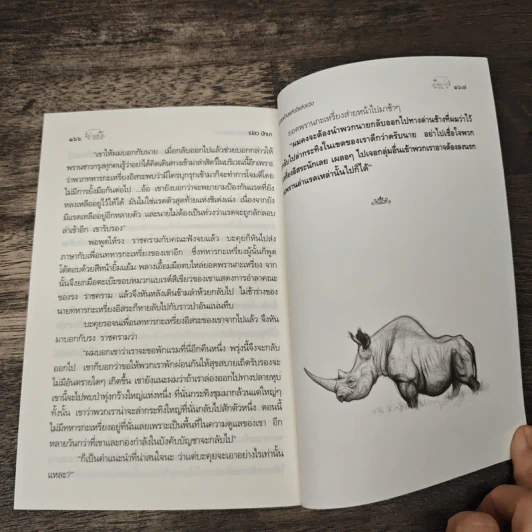 ๑๖๖
เปลว ปักษา
"เขาให้ผมบอกกับนาย เมื่อกลับออกไปแล้วช่วยบอกกล่าวให้
พรานชาวกรุงทุกคนรู้ว่าอย่าได้คิดเดินทางเข้ามาล่าสัตว์ในบริเวณนี้อีกเพราะ
ว่าพวกทหารกะเหรี่ยงอิสระพบว่ามีใครบุกรุกเข้ามาก็จะทำการโจมตีโดย
ไม่มีการยั้งมือกันต่อไป ...อ้อ เขายังบอกว่าจะพยายามป้องกันแรดที่ยัง
หลงเหลืออยู่ไว้ให้ได้ มันไม่ใช่แรดตัวสุดท้ายแห่งชิเด่งเฉ่ง เนื่องจากยัง
มีแรดเหลืออยู่อีกหลายตัว และนายไม่ต้องเป็นห่วงว่าแรดจะถูกลักลอบ
ล่าเข้าอีก เขารับรอง"
พอพูดให้รง ราชครามกับคณะฟังจบแล้ว บะคุยก็หันไปส่ง
ภาษากับเพื่อนทหารกะเหรี่ยงของเขาอีก ซึ่งทหารกะเหรี่ยงผู้นั้นก็พูด
โต้ตอบด้วยสีหน้ายิ้มแย้ม พลางเอื้อมมือตบไหล่ยอดพรานกะเหรี่ยง จาก
นั้นจึงยกมือแตะเบเร่ต์ขอบหมวกเบเรต์สีเขียวของเขาแสดงการอำลาคณะ
ของรง ราชคราม แล้วจึงหันหลังเดินข้ามลำห้วยกลับไป ไม่ช้าร่างของ
นายทหารกะเหรี่ยงอิสระก็หายลับไปกับราวป่าอันแน่นทึบ
บะคุยรอจนเพื่อนทหารกะเหรี่ยงอิสระของเขาจากไปแล้ว จึงหัน
มาบอกกับรง ราชครามว่า
"ผมบอกเขาว่าเราจะขอพักแรมที่นี่อีกคืนหนึ่ง พรุ่งนี้จึงจะกลับ
ออกไป เขาก็บอกว่าขอให้พวกเราพักผ่อนกันให้สุขสบายเถิดรับรองจะ
ไม่มีอันตรายใดๆ เกิดขึ้น เขายังแนะผมว่าถ้าเราล่องออกไปทางปลายหุบ
เขานี้จะไปพบป่าทุ่งกว้างใหญ่แห่งหนึ่ง ที่นั่นกระทิงชุมมากล้วนแต่ใหญ่ๆ
ทั้งนั้น เขาว่าพวกเราน่าจะล่ากระทิงใหญ่ที่นั่นกลับไปสักตัวหนึ่ง ตอนนี้
ไม่มีทหารกะเหรี่ยงอยู่ที่นั่นเลยเพราะเป็นพื้นที่ในความดูแลของเขา อีก
หลายวันกว่าที่เขาและกองกำลังในบังคับบัญชาจะกลับไป"
"ก็เป็นคำแนะนำที่น่าสนใจนะ ว่าแต่บะคุยจะเอาอย่างไรเท่านั้น
แหละ?"
๑๖๗
ยอดพรานกะเหรี่ยงส่ายหน้าไปมาช้าๆ
"ผมคงจะต้องนำพวกนายกลับออกไปทางด่านช้างที่ผมว่าไว้
ไปล่ากระทิงในเขตของเราดีกว่าครับนาย อย่าไปเชื่อใจพวก
อิสระนักเลย เผลอๆ ไปเจอกลุ่มอื่นเข้าพวกเราอาจต้องลงนรก
พรานล่าแรดเหล่านั้นไปก็ได้"